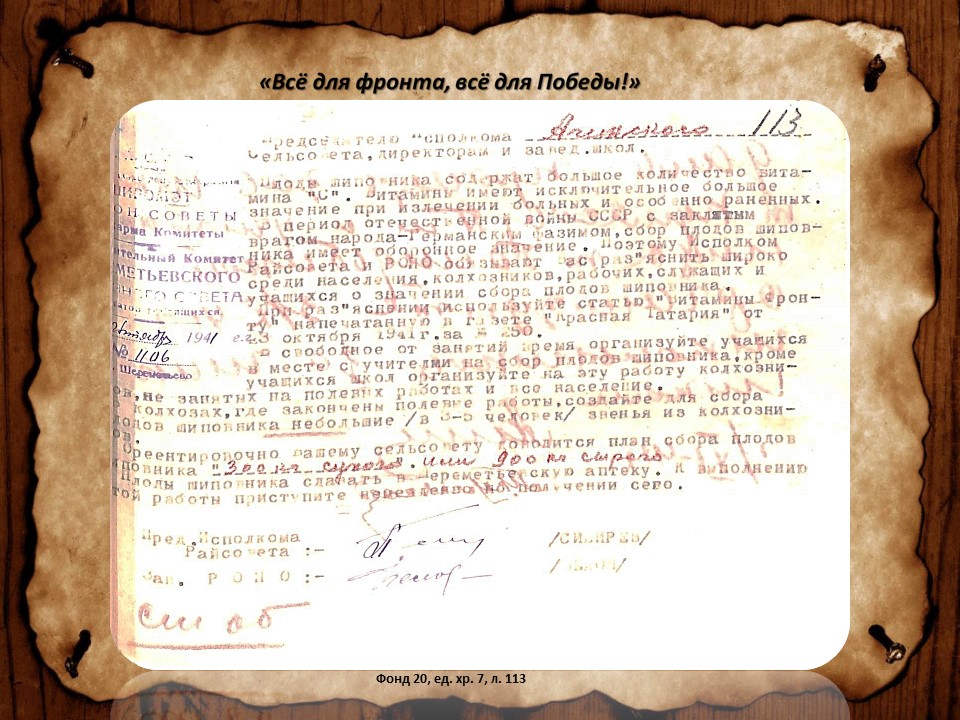 «Всё для фронта, всё для Победы!»
113
Председателю Исполкома Ачинского
Сельсовета,директорам и завед.школ.
Плоды шиповника содержат большое количество вита-
мина "С". Витамины имеют исключительное большое
значение при излечении больных и особенно раненных.
В период отечественной войны СССР с заклятым
врагом народа-Германским фазимом,сбор плодов шипов-
ника имеет оборонное значение. Поэтому Исполком
Райсовета и РОНО обязывают Вас раз"яснить широко
среди населения,колхозников,рабочих,служащих и
учащихся о значении сбора плодов шиповника.
При раз"яснении используйте статью "Витамины Фрон-
ту" напечатанную в газете "Красная Татария" от
октября 1941 г.за № 250.
В свободное от занятий время организуйте учащихся
в месте с учителями на сбор плодов шиповника,кроме
учащихся школ организуйте на эту работу колхозни-
ов,не занятых на полевых работах и все население.
колхозах,где закончены полевые работы,создайте для сбора
лодов шиповника небольшие /в 3-5 человек/ звенья из колхозни-
ов.
Ореентировочно вашему сельсовету доводится план сбора плодов
повника "300 кг сухого". или 900 кг сырого
Плоды шиповника сдавать в Череметьевскую аптеку. К выполнению
той работы приступите немедленно по получении сего.
ОН СОВЕТЫ
Комитеты
ительный Комитет
МЕТЬЕВСКОГО
СОВЕТА
трудящихся
октября 1941 г.
№ 1106
Шереметьево
Пред.Исполкома
Райсовета :- /СИБИРЕВ/
Зав. РОНО :-
Фонд 20, ед. хр. 7, л. 113